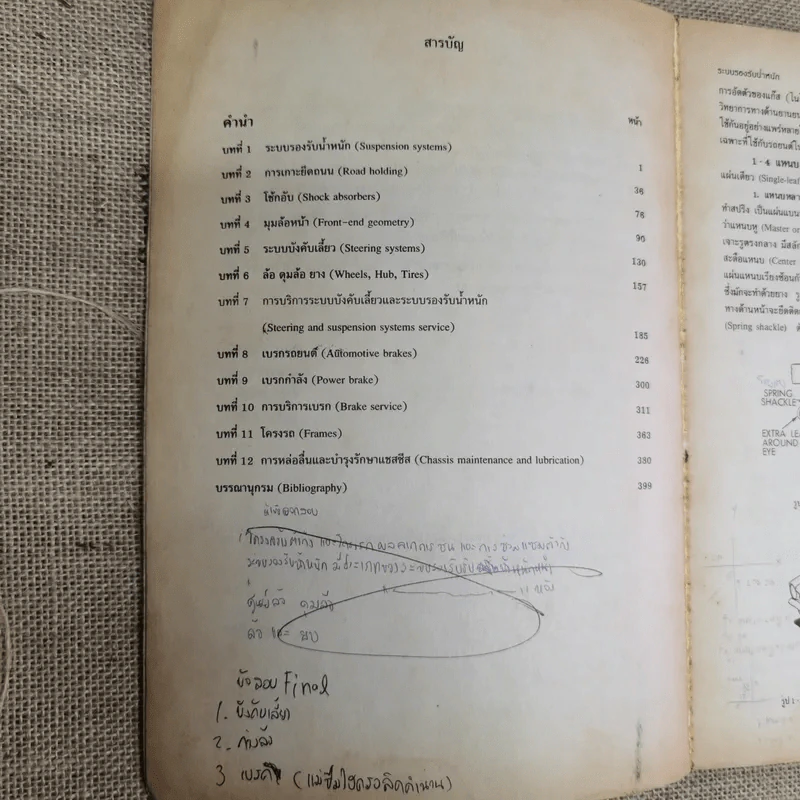 สารบัญ
คำนำ
หน้า
บทที่ 1 ระบบรองรับน้ำหนัก (Suspension systems) 1
บทที่ 2 การเกาะยึดถนน (Road holding) 36
บทที่ 3 โช้กอับ (Shock absorbers) 76
บทที่ 4 มุมล้อหน้า (Front-end geometry) 90
บทที่ 5 ระบบบังคับเลี้ยว (Steering systems) 130
บทที่ 6 ล้อ ดุมล้อ ยาง (Wheels, Hub, Tires) 157
บทที่ 7 การบริการระบบบังคับเลี้ยวและระบบรองรับน้ำหนัก
(Steering and suspension systems service) 185
บทที่ 8 เบรกรถยนต์ (Automotive brakes) 226
บทที่ 9 เบรกกำลัง (Power brake) 300
บทที่ 10 การบริการเบรก (Brake service) 311
บทที่ 11 โครงรถ (Frames) 363
บทที่ 12 การหล่อลื่นและบำรุงรักษาแชสซีส (Chassis maintenance and lubrication) 380
บรรณานุกรม (Bibliography) 399
ดุมล้อ
ล้อ และ ยาง
ข้อสอบ Final
1. บังคับเลี้ยว
2.
3 เบรค
ระบบรองรับน้ำหนัก
การอัดตัวของแก๊ส (ใน
วิทยาการทางด้านยานย
ใช้กันอยู่อย่างแพร่หลาย
เฉพาะที่ใช้กับรถยนต์
1-4 แหนบ
แผ่นเดียว (Single-leaf
1. แหนบหลา
ทำสปริง เป็นแผ่นแบน
ว่าแหนบหู (Master or
เจาะรูตรงกลาง มีสลัก
สะดือแหนบ (Center
แผ่นแหนบเรียงซ้อนกั
ซึ่งมักจะทำด้วยยาง
ทางด้านหน้าจะยึดติด
(Spring shackle)
SPRING
SHACKLE
EXTRA LE
AROUND
EYE
รูป 1-